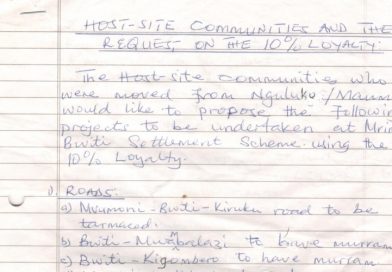 HOST-SITE COMMUNITIES AND THE
REQUEST ON THE 10% LOYALTY.
The Host-site communities who
were moved from Nguluku/Maum
would like to propose the followin
projects to be undertaken at Mri
Bwiti Settlement Scheme using the
10% Loyalty.
1) ROADS:
a) Mvumoni-Bwiti-Kiruku road to be
tarmaced.
b) Bwiti-Mwabalazi to have murram
c) Bwiti-Kigombero to have murram